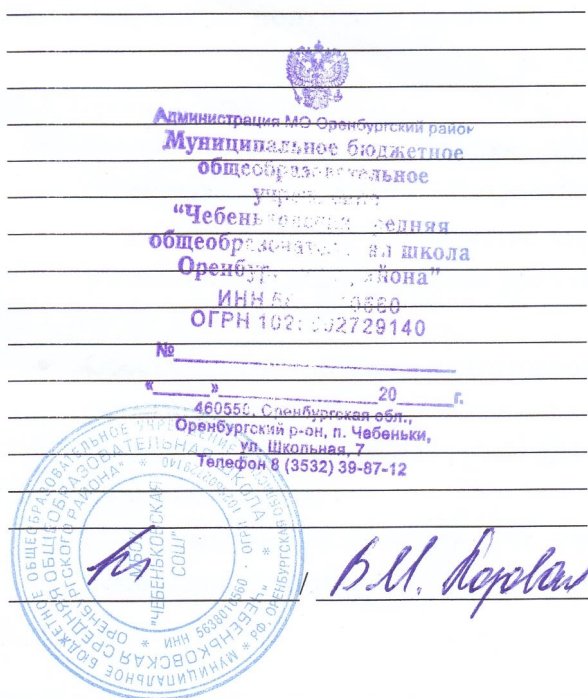 Администрация МО Оренбургский район
Муниципальное бюджетное
общеобразовательное
учреждение
“Чебеньковская средняя
общеобразовательная школа
Оренбургского района”
ИНН
ОГРН
№
« » 20 г.
Оренбургская обл.,
Оренбургский р-он, п. Чебеньки,
ул. Школьная, 7
Телефон 8 (3532) 39-87-12
МУНИЦИПАЛЬНОЕ БЮДЖЕТНОЕ ОБЩЕОБРАЗОВАТЕЛЬНОЕ УЧРЕЖДЕНИЕ
СРЕДНЯЯ ОБЩЕОБРАЗОВАТЕЛЬНАЯ ШКОЛА
ОРЕНБУРГСКОГО РАЙОНА"
"ЧЕБЕНЬКОВСКАЯ
СОШ"
/ В.М.